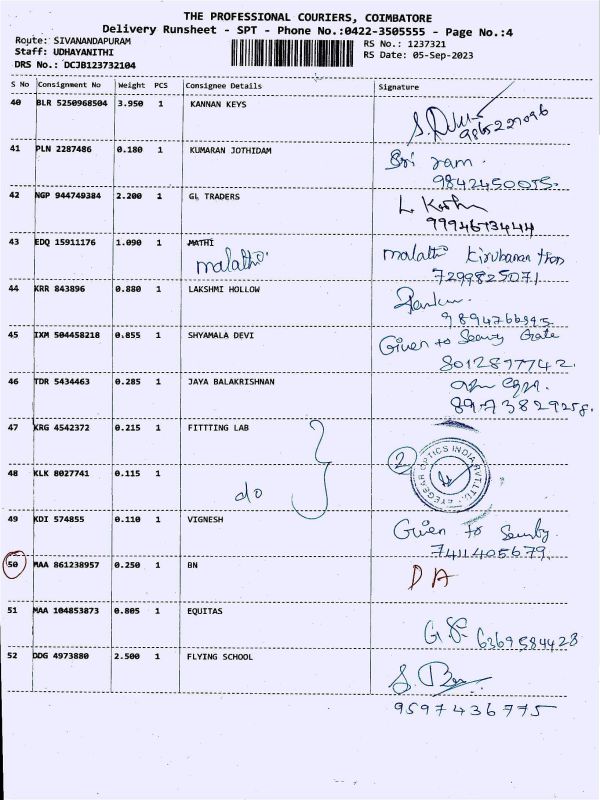 THE PROFESSIONAL COURIERS, COIMBATORE
Delivery Runsheet - SPT - Phone No.:0422-3505555 - Page No.:4
Route: SIVANANDAPURAM
RS No.: 1237321
Staff: UDHAYANITHI
RS Date: 05-Sep-2023
DRS No.: DCJB123732104
S No Consignment No Weight PCS Consignee Details Signature
40 BLR 5250968504 3.950 1 KANNAN KEYS
41 PLN 2287486 0.180 1 KUMARAN JOTHIDAM Sri ram.
9842450055.
42 NGP 944749384 2.200 1 GL TRADERS
9994673444
43 EDQ 15911176 1.090 1 MATHI malathi
malathi
7299825071
44 KRR 843896 0.880 1 LAKSHMI HOLLOW
9894766395
45 IXM 504458218 0.855 1 SHYAMALA DEVI Given to Gate
8012877742.
46 TDR 5434463 0.285 1 JAYA BALAKRISHNAN
47 KRG 4542372 0.215 1 FITTTING LAB
2 EYEGEAR OPTICS INDIA PVT.LTD.
48 KLK 8027741 0.115 1 do
49 KDI 574855 0.110 1 VIGNESH Given to
7411405679.
50 MAA 861238957 0.250 1 BN DA
51 MAA 104853873 0.805 1 EQUITAS
6369584428
52 DDG 4973880 2.500 1 FLYING SCHOOL
9597436775